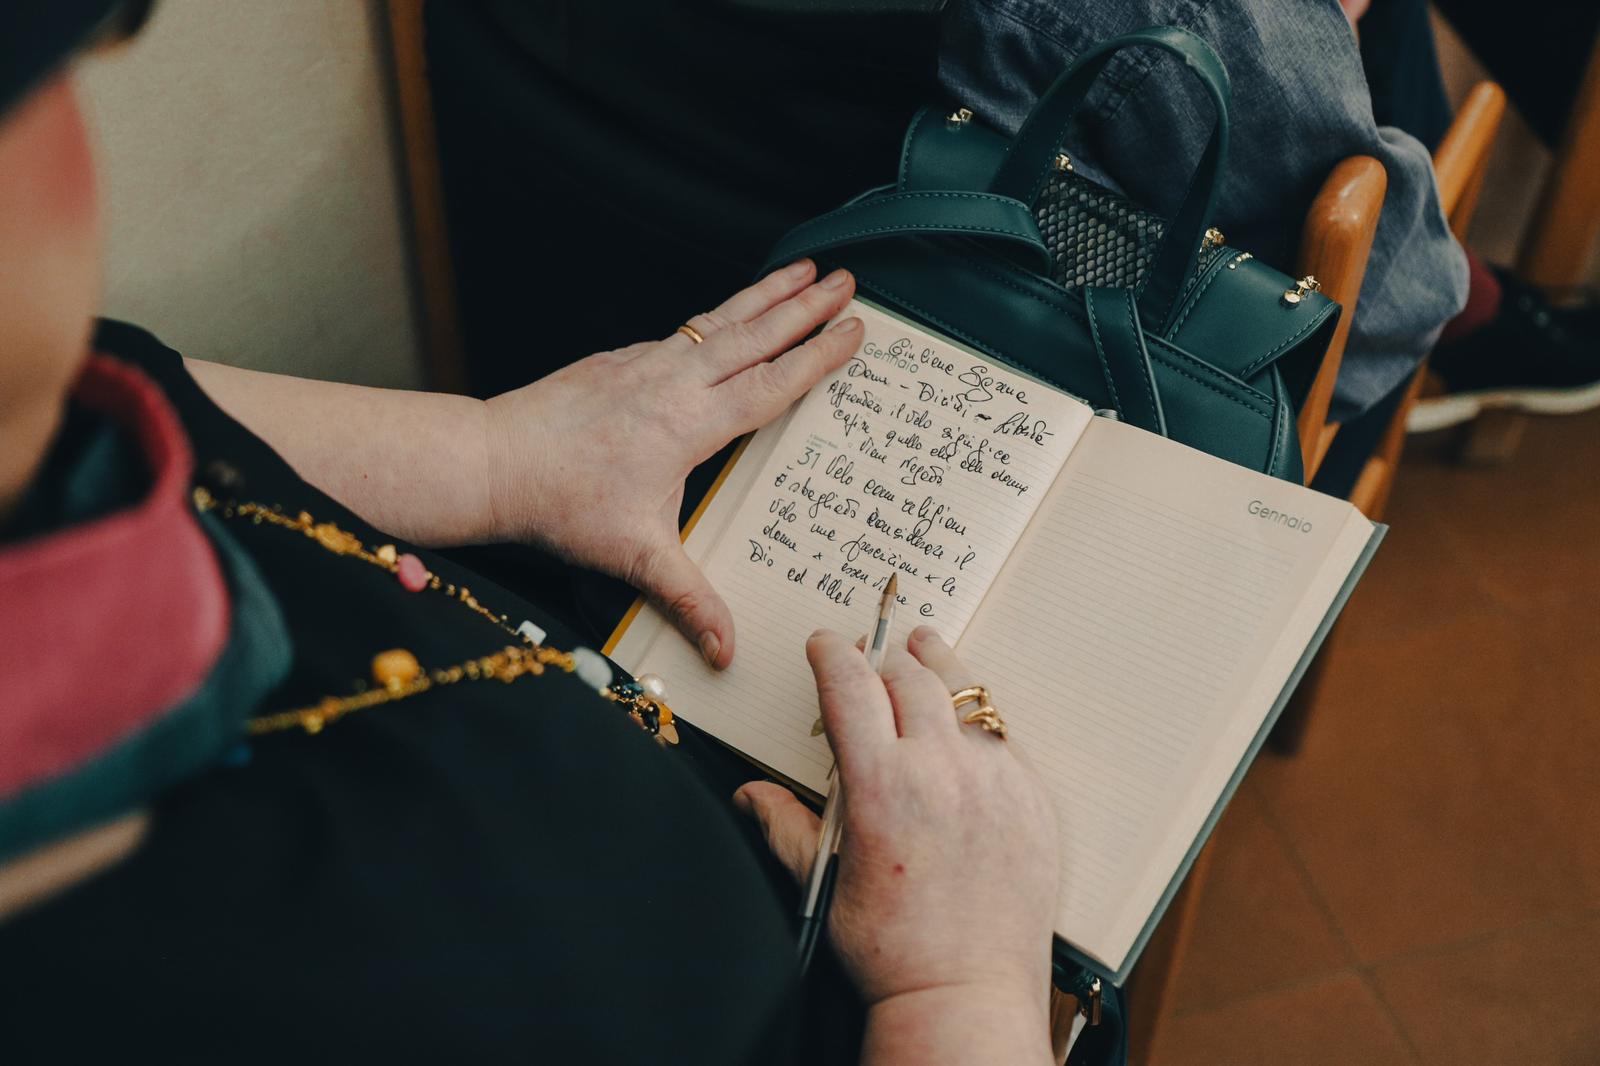 Gennaio
Giuliana Sgrena
Donne - Diritti - Libertà
Affrontare il velo significa
capire quello che alle donne
viene negato
31 Velo come religione
È sbagliato considerare il
velo una prescrizione x le
donne x
Dio ed Allah
Gennaio